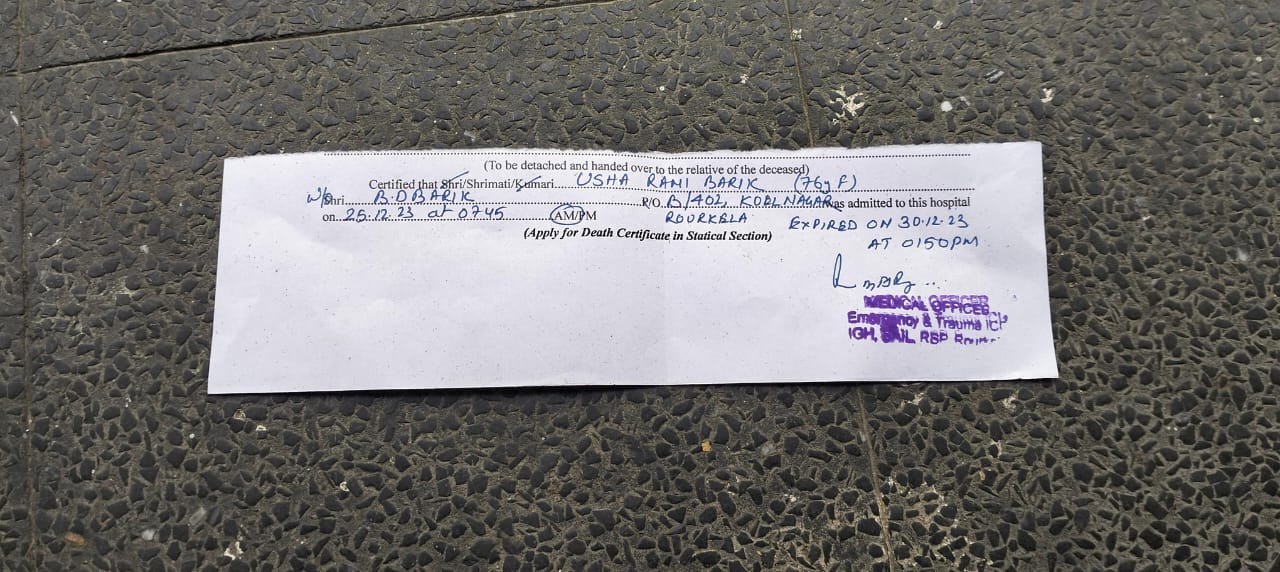 (To be detached and handed over to the relative of the deceased)
Certified that Shri/Shrimati/Kumari....USHA RANI BARIK (76y F)
W/o Shri....B.D BARIK....R/O. B/402, KOEL NAGAR was admitted to this hospital
on..25.12.23 at 0745....AM/PM ROURKELA EXPIRED ON 30.12.23
(Apply for Death Certificate in Statical Section) AT 0150PM
MEDICAL OFFICER
Emergency & Trauma
IGH, SAIL, RSP